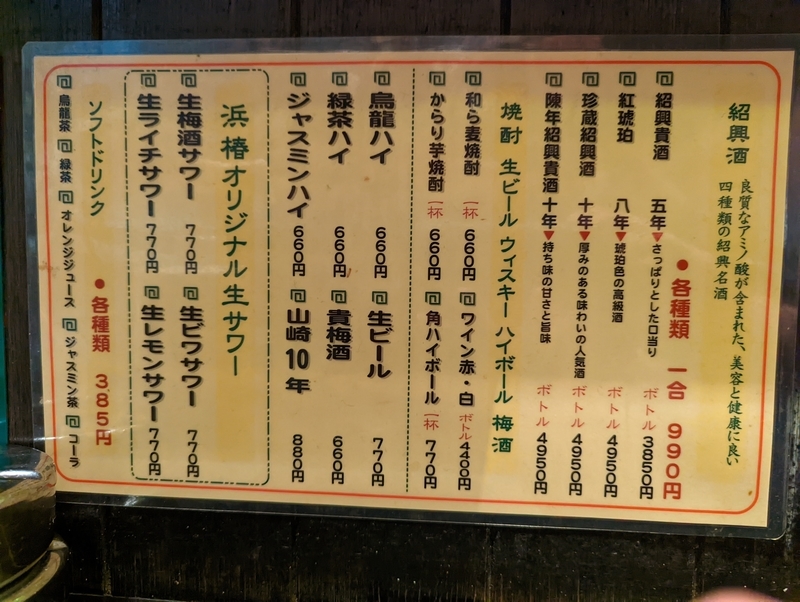 紹興酒
良質なアミノ酸が含まれた、美容と健康に良い
四種類の紹興名酒
●各種類 一合 990円
紹興貴酒 五年▼さっぱりとした口当り ボトル 3850円
紅琥珀 八年▼琥珀色の高級酒 ボトル 4950円
珍蔵紹興酒 十年▼厚みのある味わいの人気酒 ボトル 4950円
陳年紹興貴酒 十年▼持ち味の甘さと旨味 ボトル 4950円
焼酎 生ビール ウィスキー ハイボール 梅酒
和ら麦焼酎 一杯 660円
ワイン赤・白 ボトル 4400円
からり芋焼酎 一杯 660円
角ハイボール 一杯 770円
烏龍ハイ 660円
生ビール 770円
緑茶ハイ 660円
貴梅酒 660円
ジャスミンハイ 660円
山崎10年 880円
浜椿オリジナル生サワー
生梅酒サワー 770円
生ビワサワー 770円
生ライチサワー 770円
生レモンサワー 770円
ソフトドリンク
●各種類 385円
烏龍茶 緑茶 オレンジジュース ジャスミン茶 コーラ